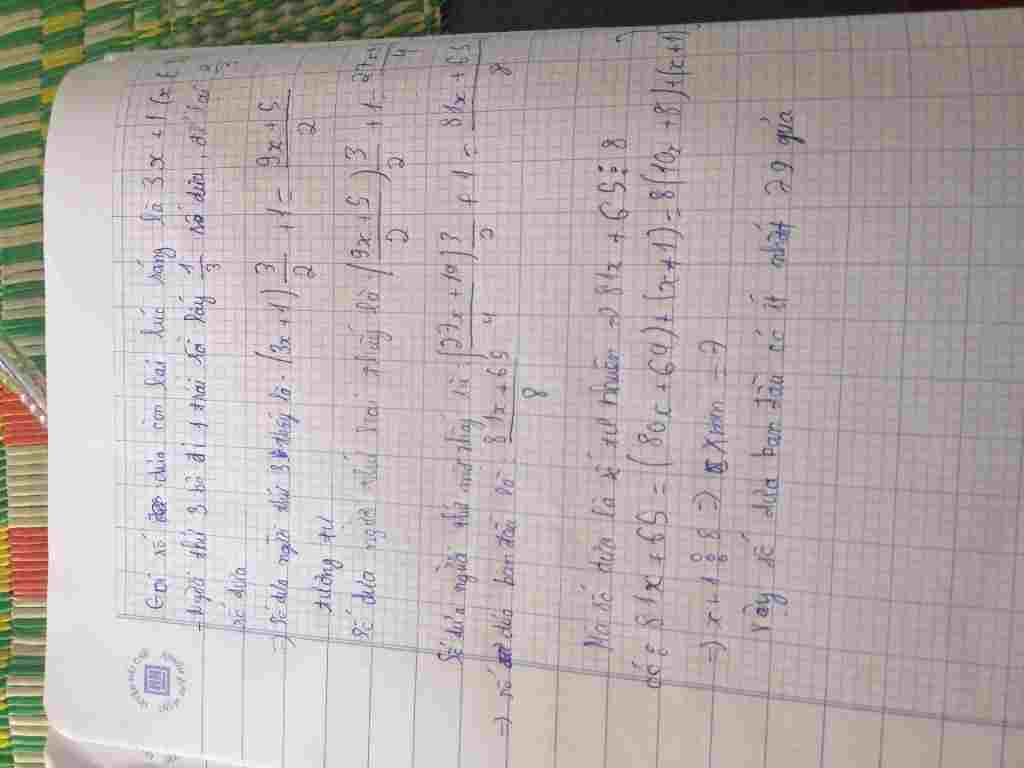 Gọi số dừa còn lại lúc sáng là 3x + 1 (x ∈
- Người thứ 3 bỏ đi 1 trái rồi lấy 1/3 số dừa, để lại 2/3
số dừa
=) Số dừa người thứ 3 thấy là: (3x + 1) 3/2 + 1 = (9x + 5)/2
tương tự
Số dừa người thứ hai thấy là ((9x + 5)/2) 3/2 + 1 =
Số dừa người thứ nhất thấy là ((27x + 19)/4) 3/2 + 1 = (81x + 65)/8
=) số dừa ban đầu là (81x + 65)/8
Mà số dừa là số tự nhiên =) 81x + 65 ⋮ 8
có: 81x + 65 = (80x + 64) + (x + 1) = 8(10x + 8) + (x + 1)
=) x + 1 ⋮ 8 =) x min = 7
Vậy số dừa ban đầu có ít nhất 79 quả